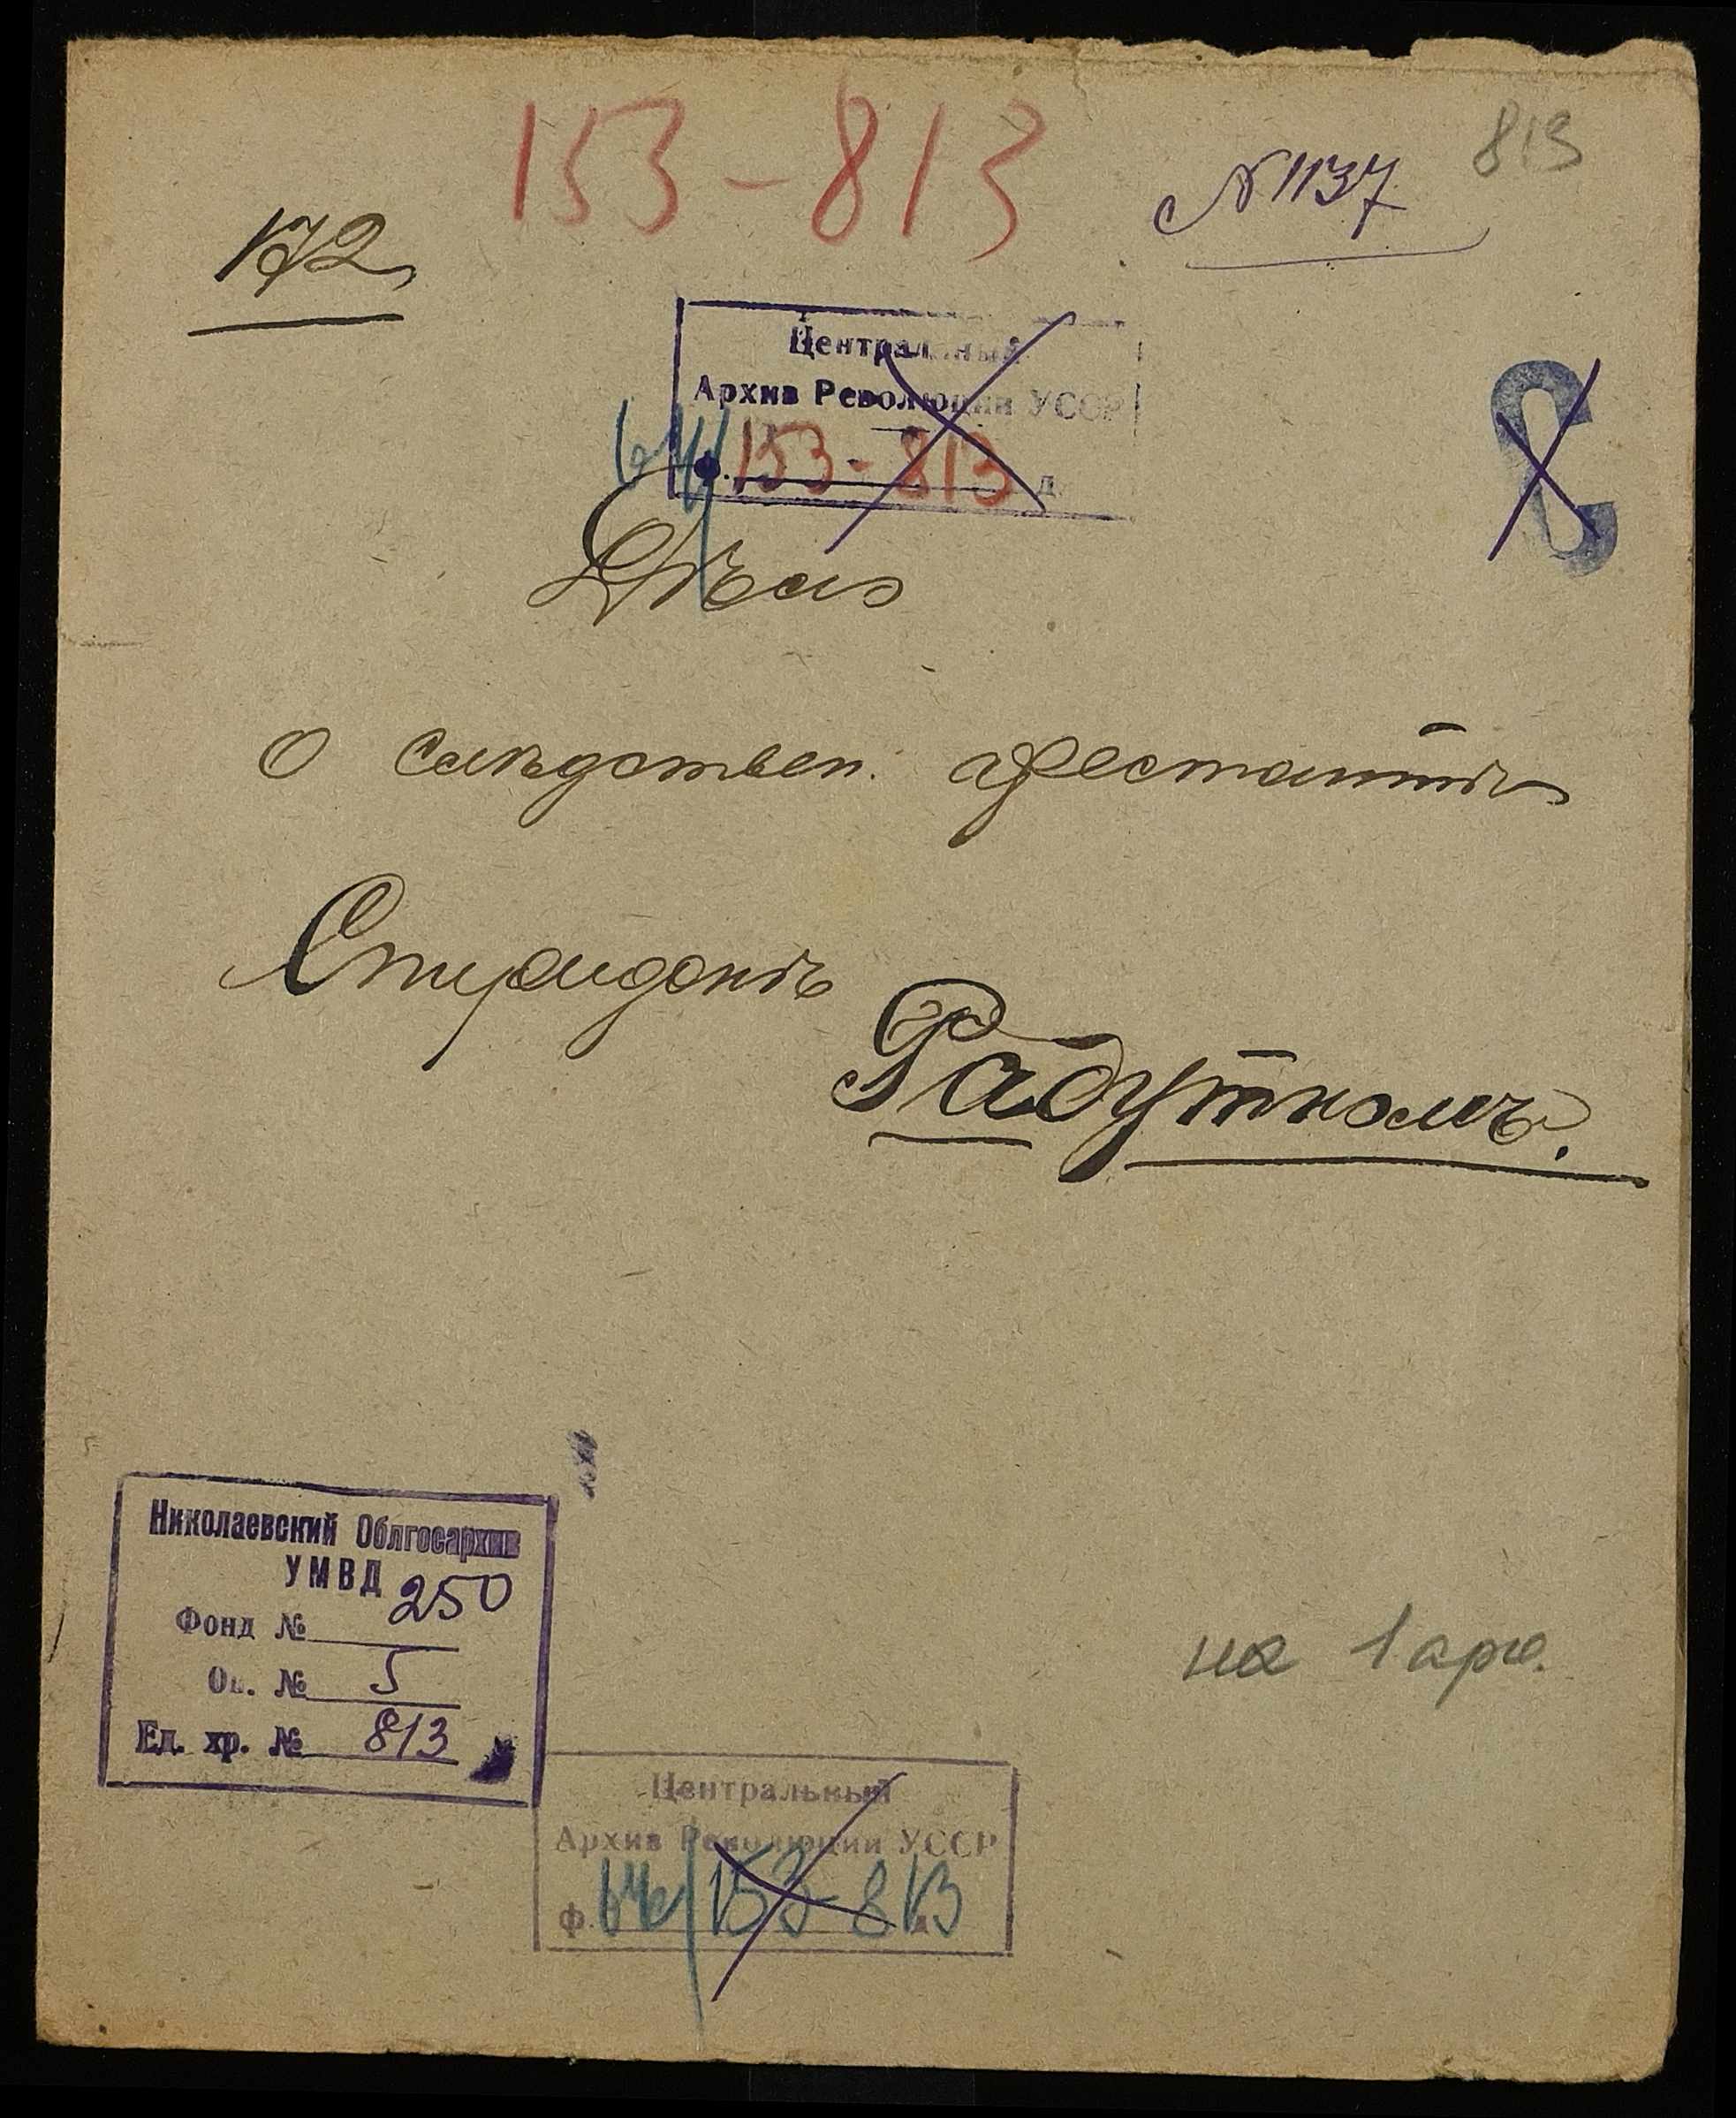 153-813
813
№ 1137
172
Центральный
Архив Революции УССР
ф. 153-813 д.
Дѣло
о слѣдствен. арестантѣ
Спиридонѣ
Радутномъ.
Николаевский Облгосархив
УМВД
Фонд № 250
Оп. № 5
Ед. хр. № 813
на 1 арк.
Центральный
Архив Революции УССР
ф. 153-813